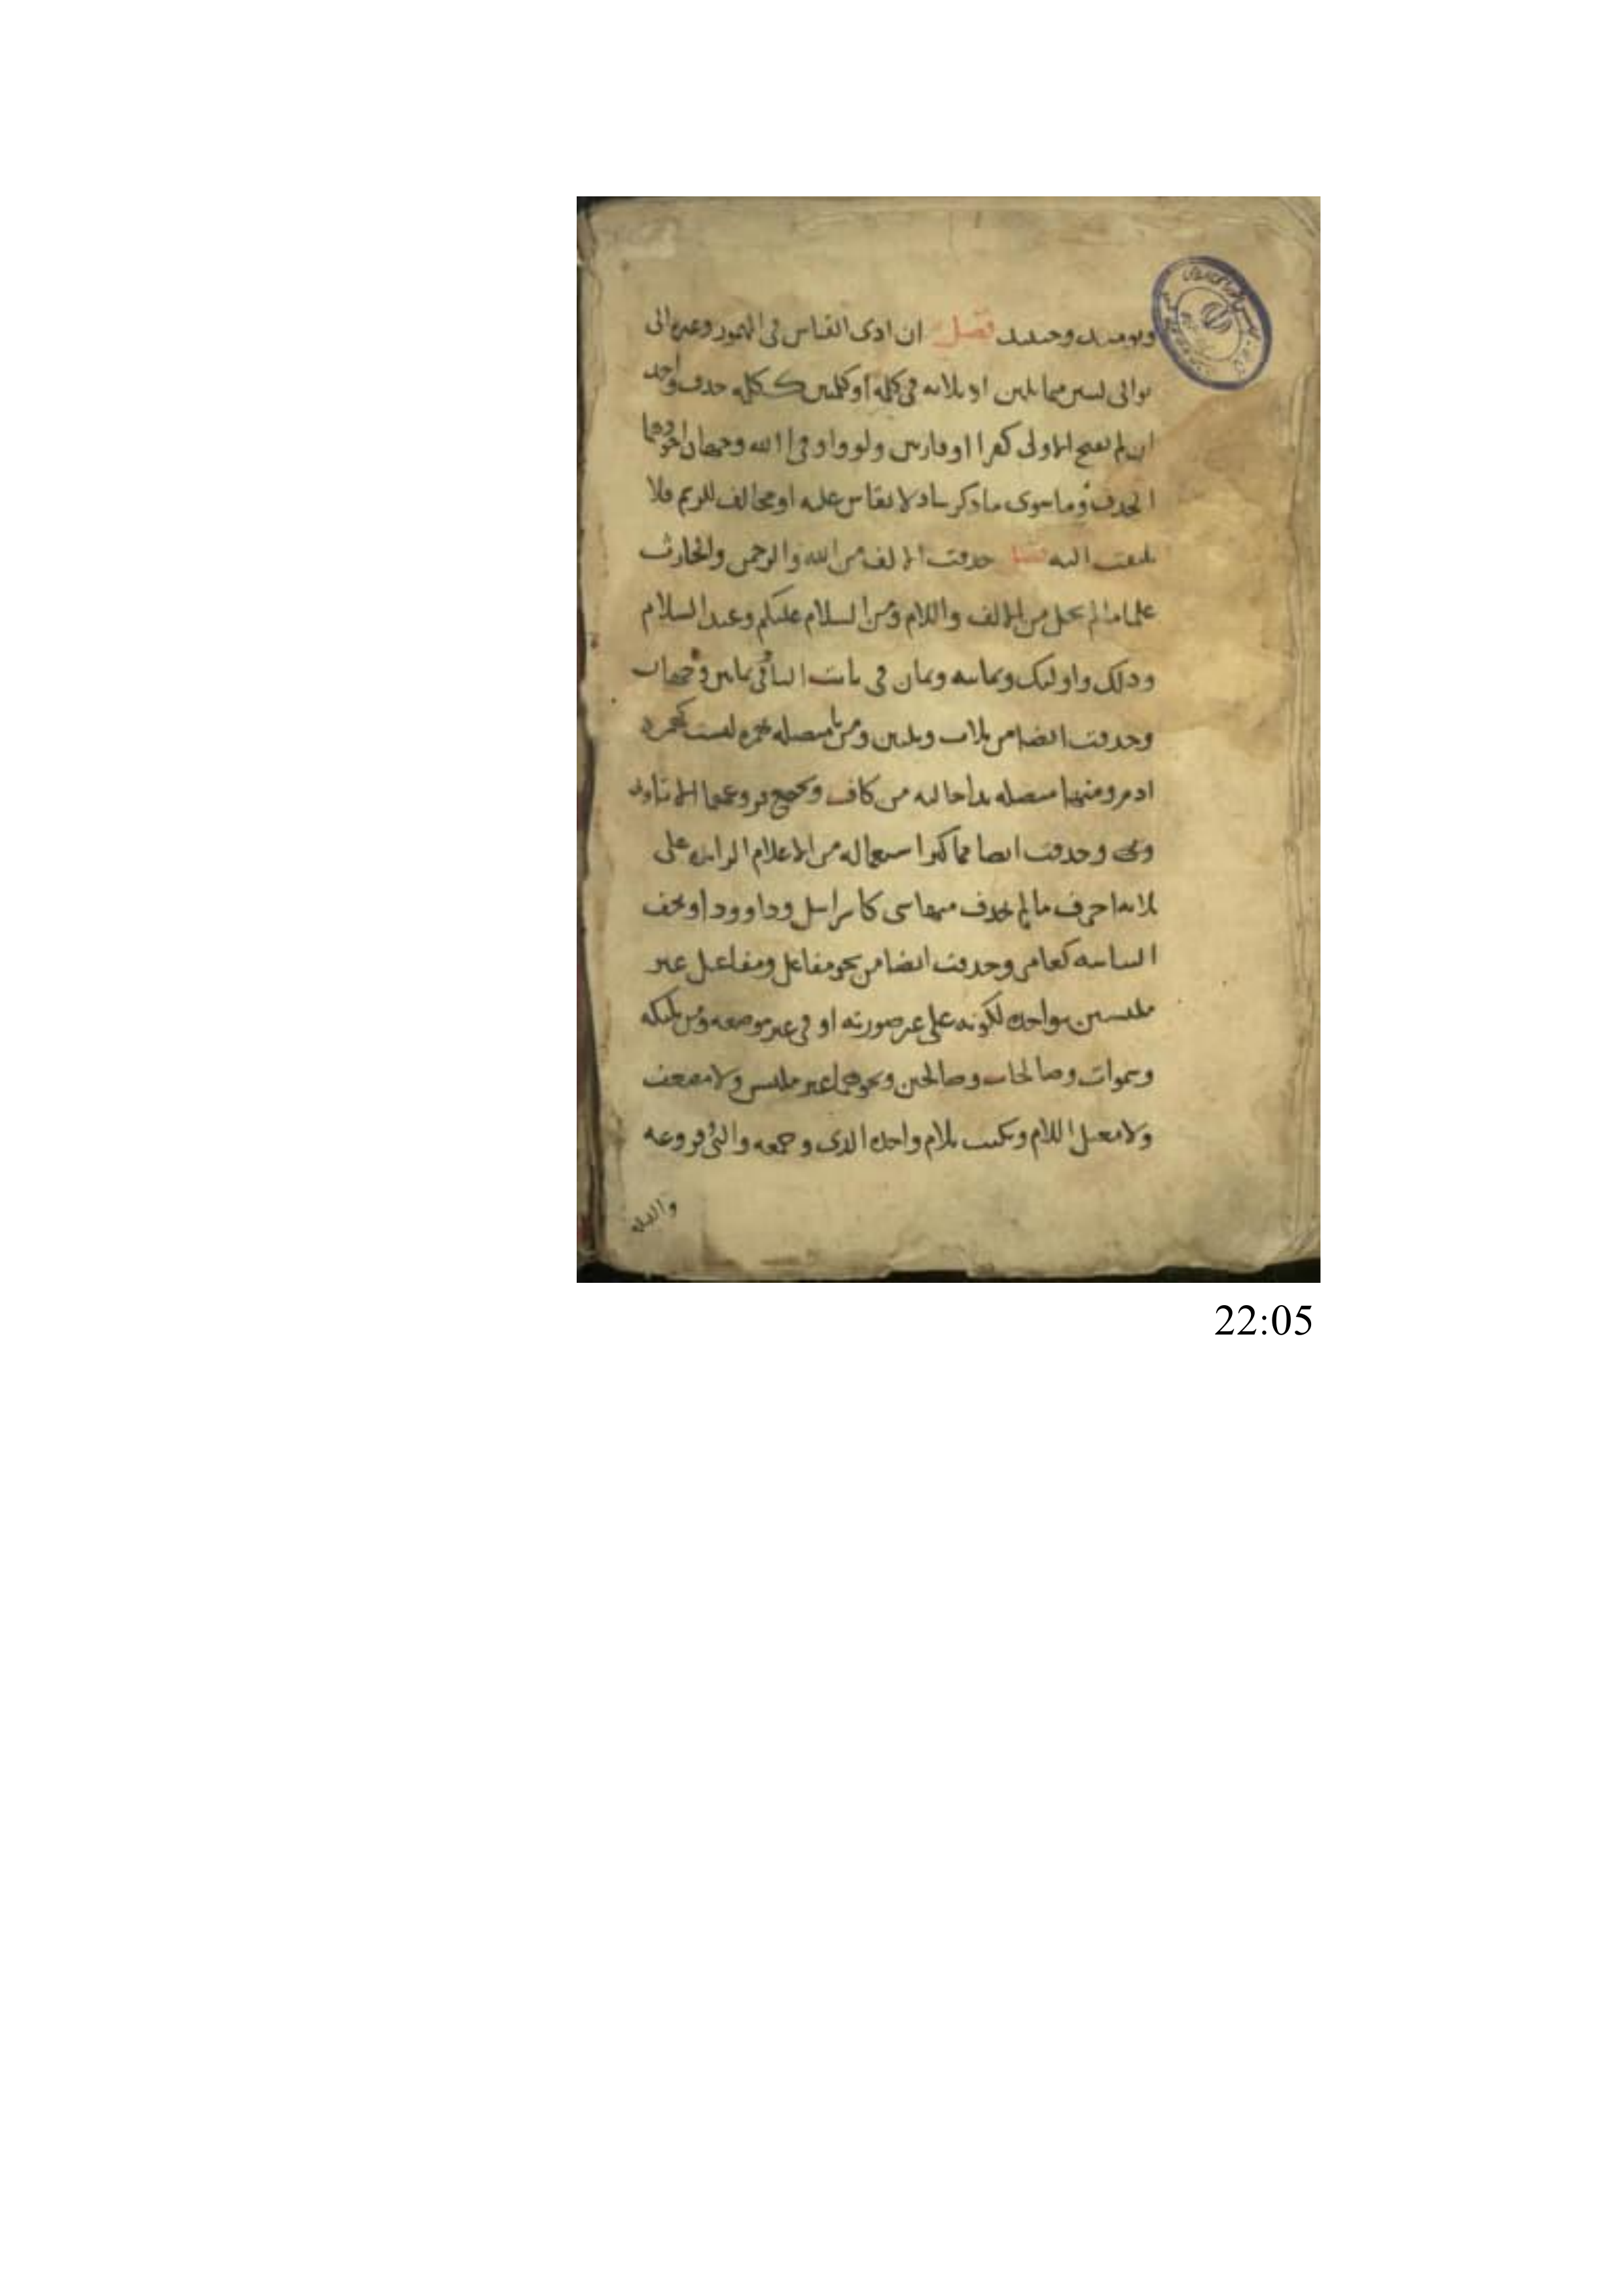 ويومئذ وحينئذ فصل ان ادى القياس في المهموز وغيره الى
توالى لينين متماثلين او ثلاثة في كلمة او كلمتين ككلمة حذف واحد
ان لم تفتح الاولى كقرا او قارين ولو واو في االله وجهان اجودهما
الحذف وما سوى ما ذكر شاذ لا يقاس عليه او مخالف للرسم فلا
يلتفت اليه فصل حذفت الالف من الله والرحمن والحارث
علما ما لم يخل من الالف واللام ومن السلام عليكم وعبد السلام
وذلك واولئك وثمانية وثمان في ثابت الياء وفي ثمانين وجهان
وحذفت ايضا من ثلاث وثلثين ومن يا متصلة بهمزة ليست كهمزة
ادم ومنها متصلة بذا خالية من كاف وبجميع فروعها الا تا وتى
وتى وحذفت ايضا مما كثر استعماله من الاعلام الزايدة على
ثلاثة احرف ما لم يحذف منها شى كاسرايل وداوود او يخف
التباسه كعامر وحذفت ايضا من نحو مفاعل ومفاعيل غير
ملتبسين بواحد لكونه على غير صورته او في غير موضعه ومن ملئكة
وسموات وصالحات وصالحين ونحوهما غير ملتبس ولا مضعف
ولا معتل اللام ويكتب بلام واحدة الذى وجمعه والتى وفروعه
والليله
22:05